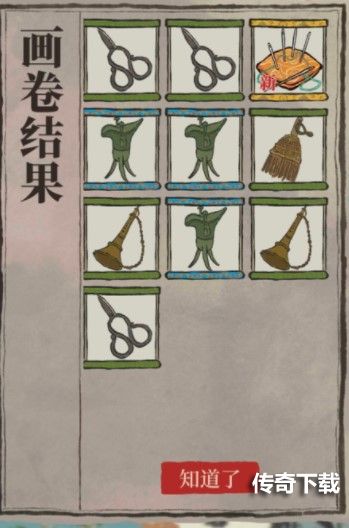 画卷结果
新
知道了
传奇下载